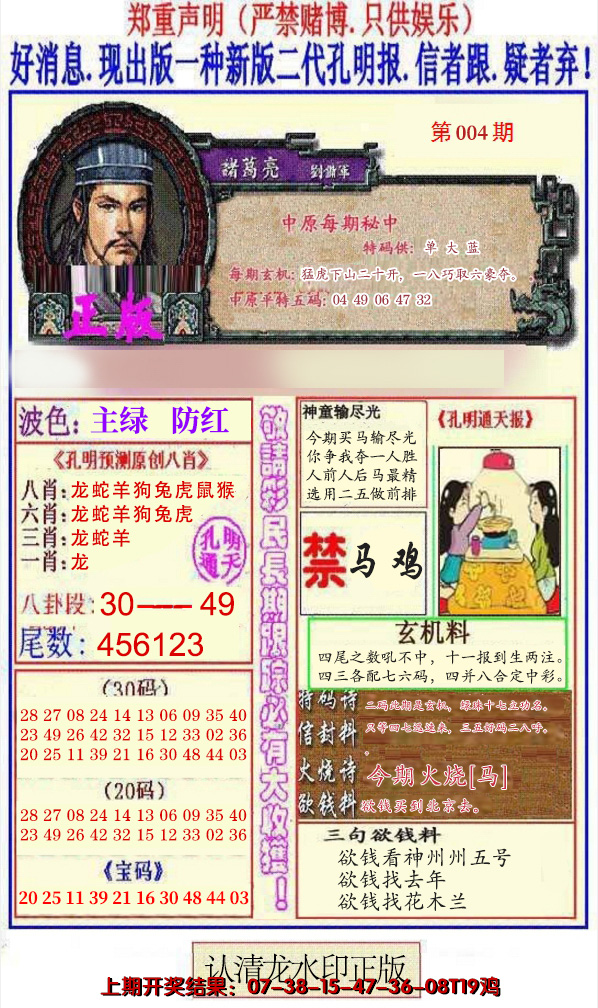 郑重声明（严禁赌博.只供娱乐）
好消息.现出版一种新版二代孔明报.信者跟.疑者弃！
第004期
諸葛亮 劉備軍
中原每期秘中
特码供：单大蓝
每期玄机：猛虎下山二十开，一八巧取六豪夺。
中原平特五码：04 49 06 47 32
正版
波色：主绿 防红
《孔明预测原创八肖》
八肖：龙蛇羊狗兔虎鼠猴
六肖：龙蛇羊狗兔虎
三肖：龙蛇羊
一肖：龙
孔明
通天
八卦段：30——49
尾数：456123
（30码）
28 27 08 24 14 13 06 09 35 40
23 49 26 42 32 15 12 33 02 36
20 25 11 39 21 16 30 48 44 03
（20码）
28 27 08 24 14 13 06 09 35 40
23 49 26 42 32 15 12 33 02 36
《宝码》
20 25 11 39 21 16 30 48 44 03
敬請彩民長期跟踪必有大收獲！
神童输尽光
今期买马输尽光
你争我夺一人胜
人前人后马最精
选用二五做前排
《孔明通天报》
禁 马 鸡
玄机料
四尾之数吼不中，十一报到生两注。
四三各配七六码，四并八合定中彩。
特码诗 二码此期是玄机，绿珠十七立功名。
信封料 只等四七远远来，三五好码二八呼。
火烧诗 今期火烧[马]
欲钱料 欲钱买到北京去。
三句欲钱料
欲钱看神州州五号
欲钱找去年
欲钱找花木兰
认清龙水印正版
上期开奖结果：07-38-15-47-36-08T19鸡